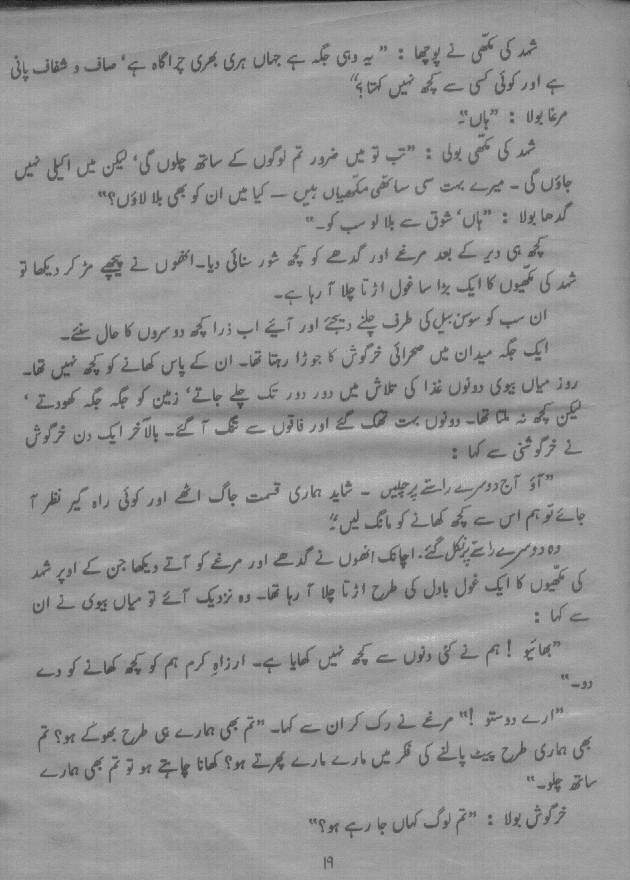 شہد کی مکّھی نے پوچھا : ”یہ وہی جگہ ہے جہاں ہری بھری چراگاہ ہے‘ صاف و شفاف پانی
ہے اور کوئی کسی سے کچھ نہیں کہتا؟“
مرغا بولا : ”ہاں“۔
شہد کی مکّھی بولی : ”تب تو میں ضرور تم لوگوں کے ساتھ چلوں گی‘ لیکن میں اکیلی نہیں
جاؤں گی ۔ میرے بہت سی ساتھی مکّھیاں ہیں — کیا میں ان کو بھی بلا لاؤں؟“
گدھا بولا : ”ہاں‘ شوق سے بلا لو سب کو۔“
کچھ ہی دیر کے بعد مرغے اور گدھے کو کچھ شور سنائی دیا۔ انھوں نے پیچھے مڑ کر دیکھا تو
شہد کی مکّھیوں کا ایک بڑا سا غول اڑتا چلا آ رہا ہے۔
ان سب کو سوسن بیل کی طرف چلنے دیجئے اور آیئے اب ذرا کچھ دوسروں کا حال سنئے۔
ایک جگہ میدان میں صحرائی خرگوش کا جوڑا رہتا تھا۔ ان کے پاس کھانے کو کچھ نہیں تھا۔
روز میاں بیوی دونوں غذا کی تلاش میں دور دور تک چلے جاتے‘ زمین کو جگہ جگہ کھودتے ‘
لیکن کچھ نہ ملتا تھا۔ دونوں بہت تھک گئے اور فاقوں سے تنگ آ گئے۔ بالآخر ایک دن خرگوش
نے خرگوشنی سے کہا :
”آؤ آج دوسرے راستے پر چلیں ۔ شاید ہماری قسمت جاگ اٹھے اور کوئی راہ گیر نظر آ
جائے تو ہم اس سے کچھ کھانے کو مانگ لیں“۔
وہ دوسرے راستے پر نکل گئے۔ اچانک انھوں نے گدھے اور مرغے کو آتے دیکھا جن کے اوپر شہد
کی مکّھیوں کا ایک غول بادل کی طرح اڑتا چلا آ رہا تھا۔ وہ نزدیک آئے تو میاں بیوی نے ان
سے کہا :
”بھائیو ! ہم نے کئی دنوں سے کچھ نہیں کھایا ہے۔ ازراہِ کرم ہم کو کچھ کھانے کو دے
دو۔“
”ارے دوستو !“ مرغے نے رک کر ان سے کہا۔ ”تم بھی ہمارے ہی طرح بھوکے ہو؟ تم
بھی ہماری طرح پیٹ پالنے کی فکر میں مارے مارے پھرتے ہو؟ کھانا چاہتے ہو تو تم بھی ہمارے
ساتھ چلو۔“
خرگوش بولا : ”تم لوگ کہاں جا رہے ہو؟“
۱۹